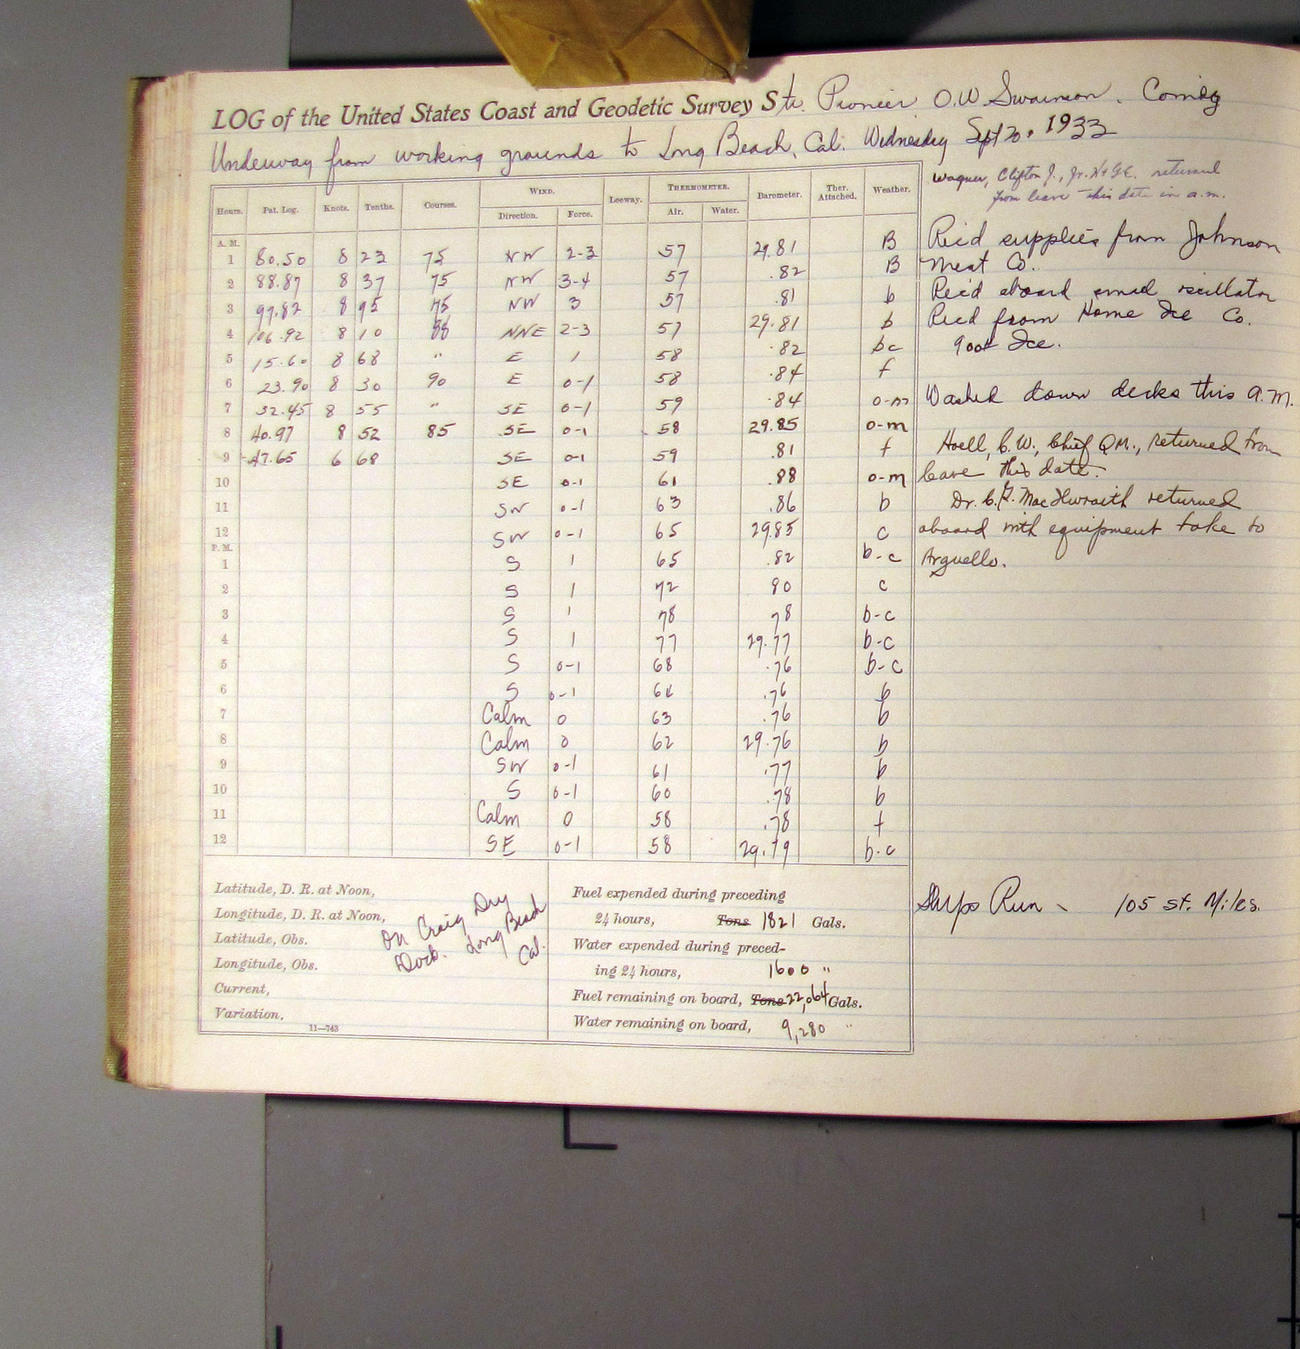 LOG of the United States Coast and Geodetic Survey Str. Pioneer O.W. Swainson. Comdg
Underway from working grounds to Long Beach, Cal. Wednesday Sept 20, 1933
Hours. Pat. Log. Knots. Tenths. Courses. WIND. Leeway. THERMOMETER. Barometer. Ther. Attached. Weather.
Direction. Force. Air. Water.
A. M.
1 80.50 8 23 75 NW 2-3 57 29.81 B
2 88.87 8 37 75 NW 3-4 57 .82 B
3 97.82 8 95 75 NW 3 57 .81 b
4 106.92 8 10 88 NNE 2-3 57 29.81 b
5 15.60 8 68 " E 1 58 .82 bc
6 23.90 8 30 90 E 0-1 58 .84 f
7 32.45 8 55 " SE 0-1 59 .84 o-m
8 40.97 8 52 85 SE 0-1 58 29.85 o-m
9 47.65 6 68 SE 0-1 59 .81 f
10 SE 0-1 61 .88 o-m
11 SW 0-1 63 .86 b
12 SW 0-1 65 29.85 c
P. M.
1 S 1 65 .82 b-c
2 S 1 72 80 c
3 S 1 78 78 b-c
4 S 1 77 29.77 b-c
5 S 0-1 68 .76 b-c
6 S 0-1 .76 b
7 Calm 0 63 .76 b
8 Calm 0 62 29.76 b
9 SW 0-1 61 .77 b
10 S 0-1 60 .78 b
11 Calm 0 58 .78 f
12 SE 0-1 58 29.79 b-c
Wagner, Clifton J., Jr. H.&G.E. returned
from leave this date in a.m.
Rec'd supplies from Johnson
Meat Co.
Rec'd aboard small oscillator
Rec'd from Home Ice Co.
900# Ice.
Washed down decks this A.M.
Hoell, C.W., Chief QM., returned from
leave this date.
Dr. C.G. MacIlwraith returned
aboard with equipment take to
Arguello.
Latitude, D. R. at Noon,
Longitude, D. R. at Noon,
Latitude, Obs.
Longitude, Obs.
Current,
Variation,
11—743
On Craig Dry
Dock. Long Beach
Cal.
Fuel expended during preceding
24 hours, Tons 1821 Gals.
Water expended during preced-
ing 24 hours, 1600 "
Fuel remaining on board, Tons 22,064 Gals.
Water remaining on board, 9,280 "
Ships Run - 105 st. Miles.